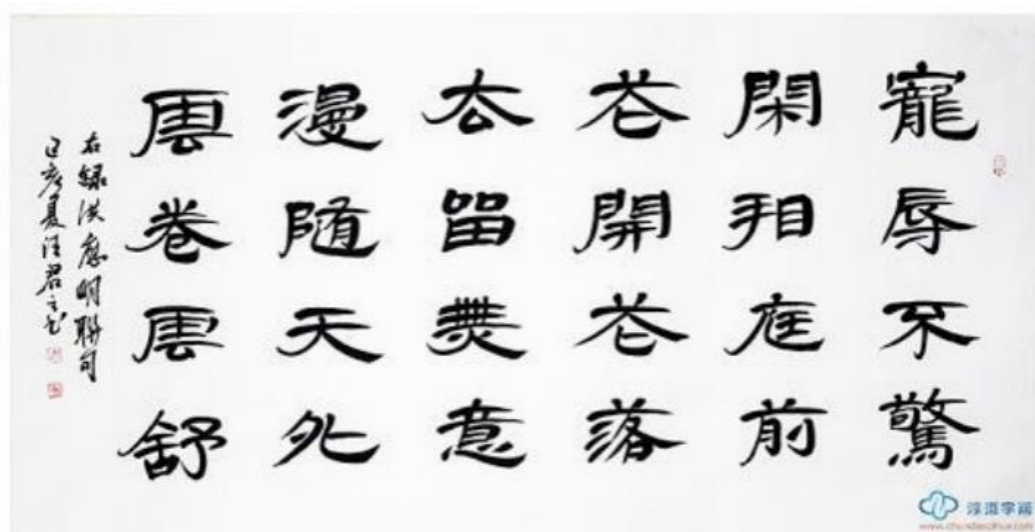 寵辱不驚
閑看庭前
花開花落
去留無意
漫随天外
雲卷雲舒
右録洪應明聯句
夏汪君之书